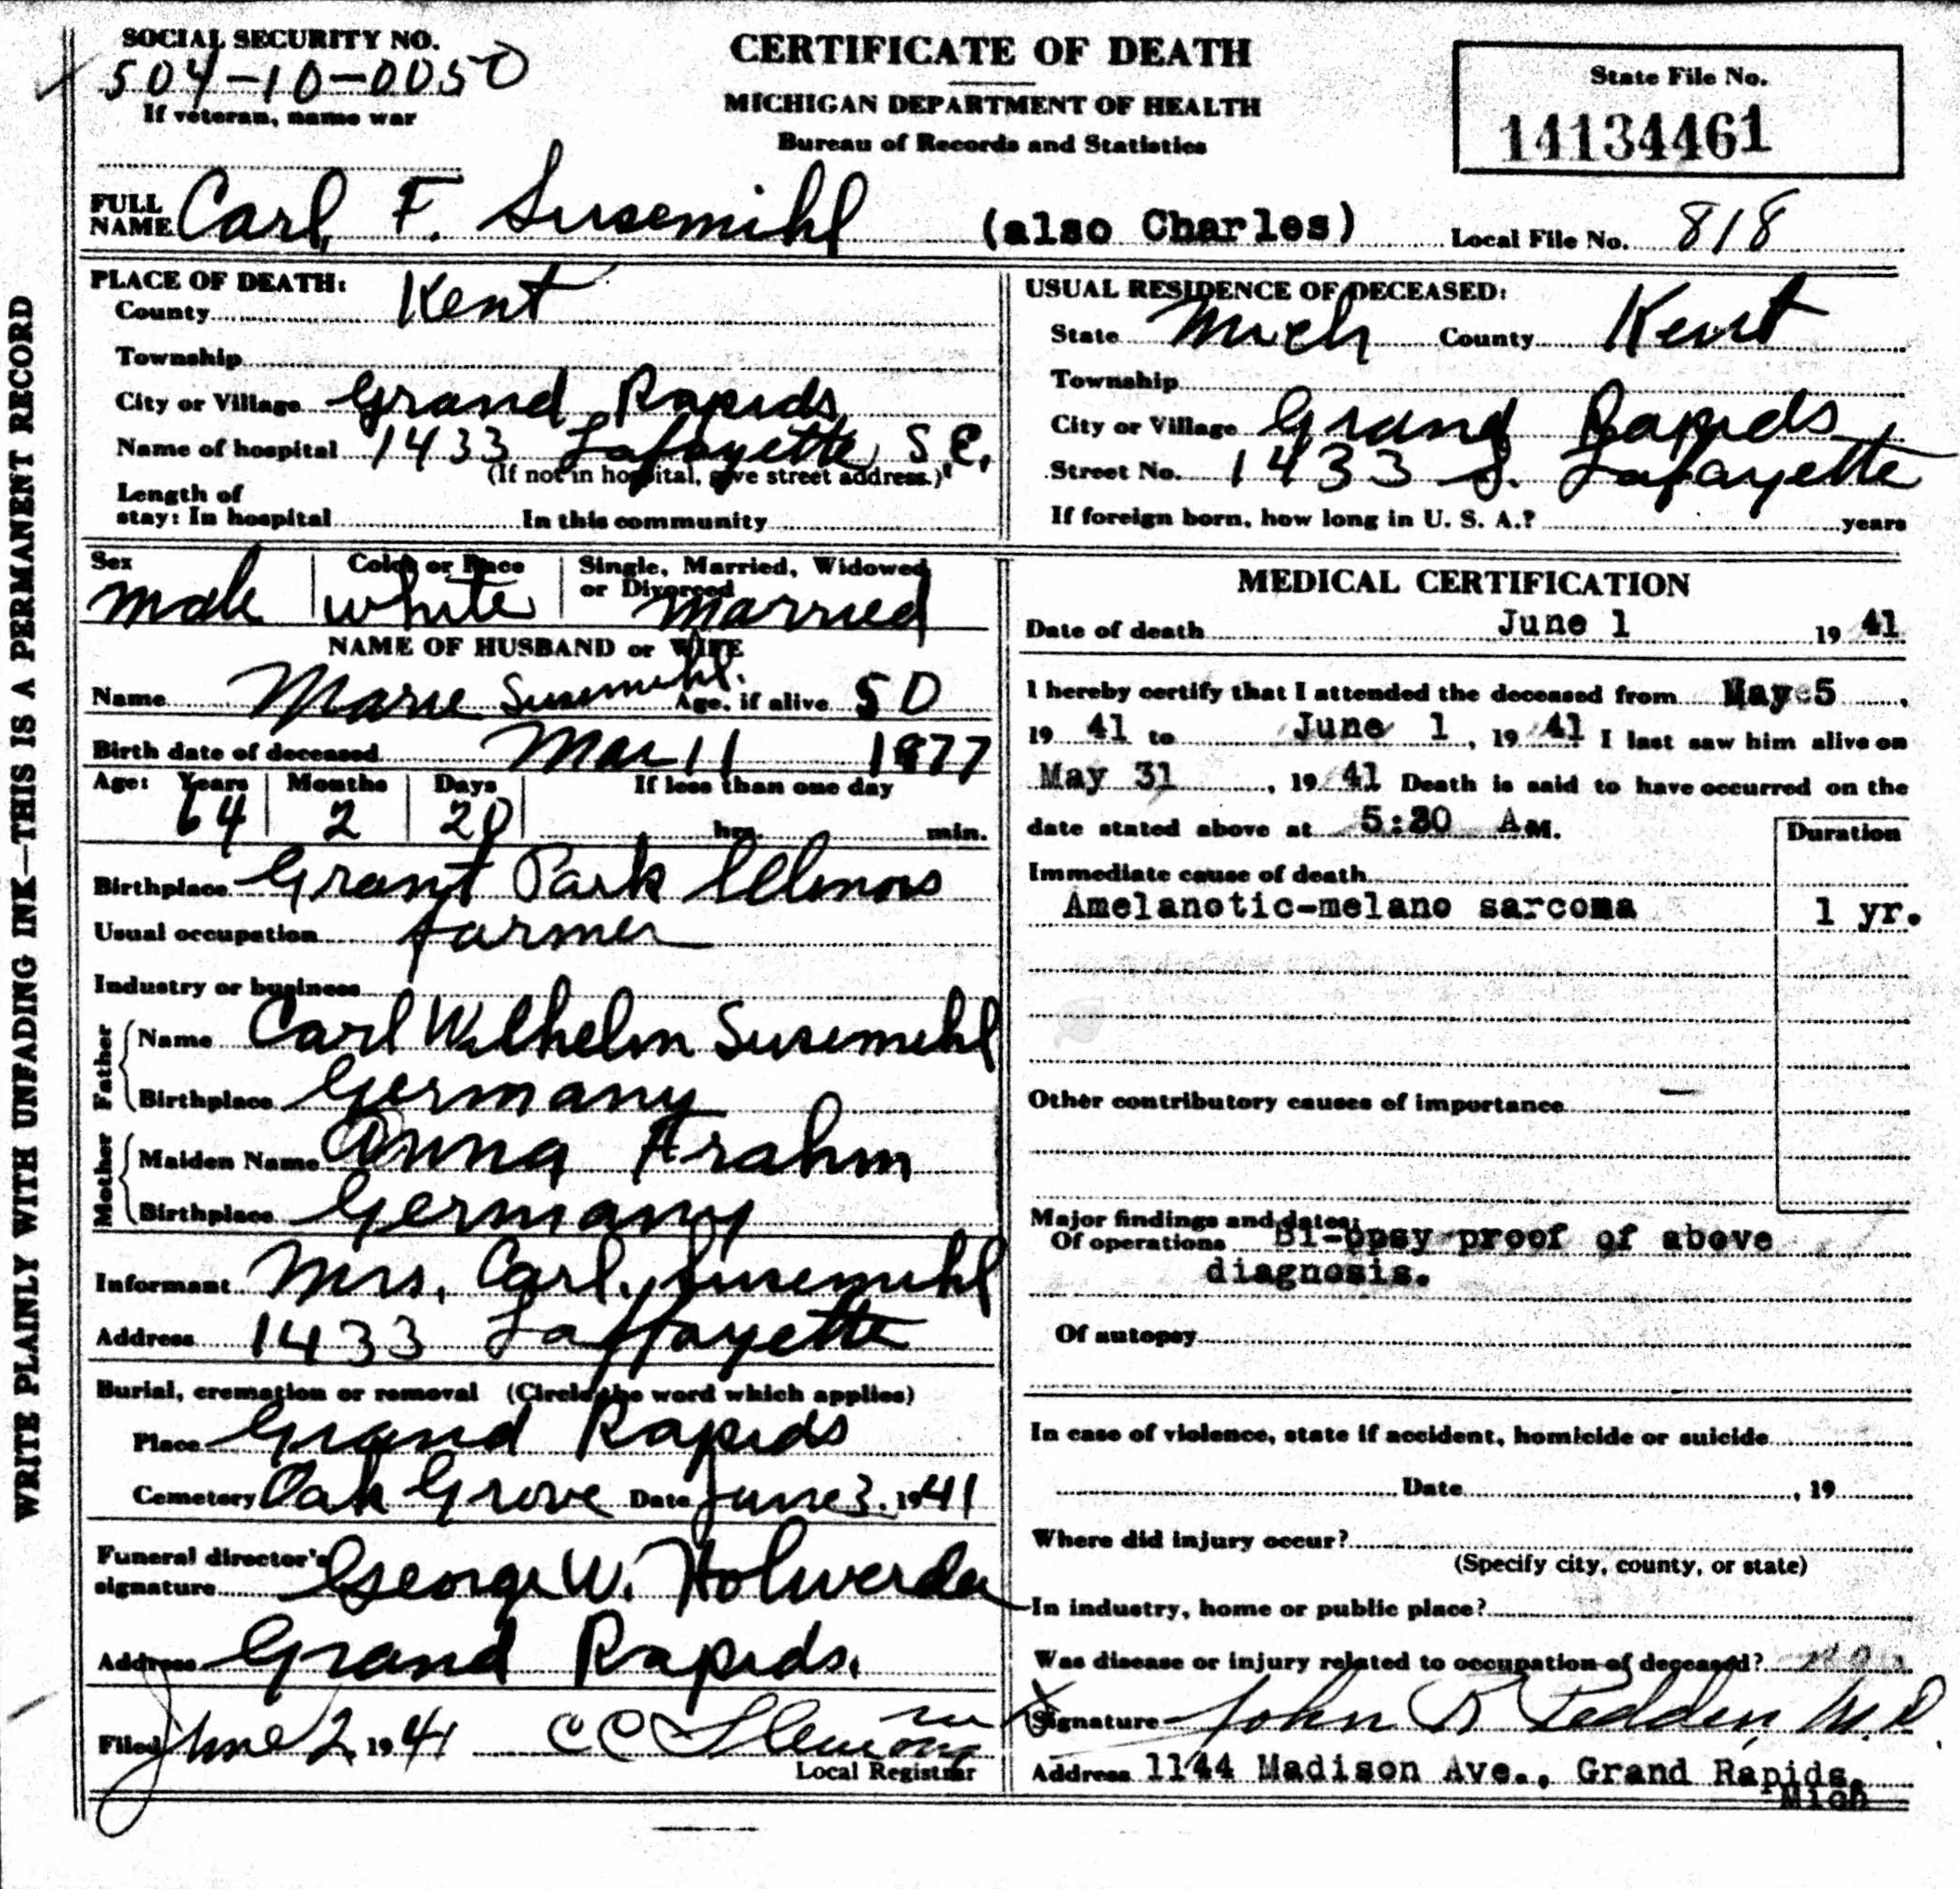 SOCIAL SECURITY NO.
504-10-0050
If veteran, name war
CERTIFICATE OF DEATH
MICHIGAN DEPARTMENT OF HEALTH
Bureau of Records and Statistics
State File No.
14134461
FULL NAME Carl F. Susemihl (also Charles) Local File No. 818
PLACE OF DEATH:
County Kent
Township
City or Village Grand Rapids
Name of hospital 1433 Lafayette S.E.
(If not in hospital, give street address.)
Length of
stay: In hospital In this community
USUAL RESIDENCE OF DECEASED:
State Mich County Kent
Township
City or Village Grand Rapids
Street No. 1433 S. Lafayette
If foreign born, how long in U. S. A.? years
Sex male
Color or Race white
Single, Married, Widowed or Divorced married
NAME OF HUSBAND or WIFE
Name Marie Susemihl. Age, if alive 50
Birth date of deceased Mar 11 1877
Age: Years Months Days If less than one day
64 2 20 hrs. min.
Birthplace Grant Park Illinois
Usual occupation farmer
Industry or business
Father
Name Carl Wilhelm Susemihl
Birthplace Germany
Mother
Maiden Name Anna Frahm
Birthplace Germany
Informant Mrs. Carl Susemihl
Address 1433 Laffayette
Burial, cremation or removal (Circle the word which applies)
Place Grand Rapids
Cemetery Oak Grove Date June 3, 1941
Funeral director's
signature George W. Holwerda
Address Grand Rapids.
Filed June 2 1941 CC
Local Registrar
MEDICAL CERTIFICATION
Date of death June 1 19 41
I hereby certify that I attended the deceased from May 5,
19 41 to June 1, 19 41 I last saw him alive on
May 31, 19 41 Death is said to have occurred on the
date stated above at A M.
Duration
Immediate cause of death
Amelanotic-melano sarcoma 1 yr.
Other contributory causes of importance —
Major findings and dates:
Of operations Bi-opsy proof of above
diagnosis.
Of autopsy
In case of violence, state if accident, homicide or suicide
Date , 19
Where did injury occur?
(Specify city, county, or state)
In industry, home or public place?
Was disease or injury related to occupation of deceased?
Signature John R Pedden, M.D.
Address 1144 Madison Ave., Grand Rapids,
Mich
WRITE PLAINLY WITH UNFADING INK—THIS IS A PERMANENT RECORD